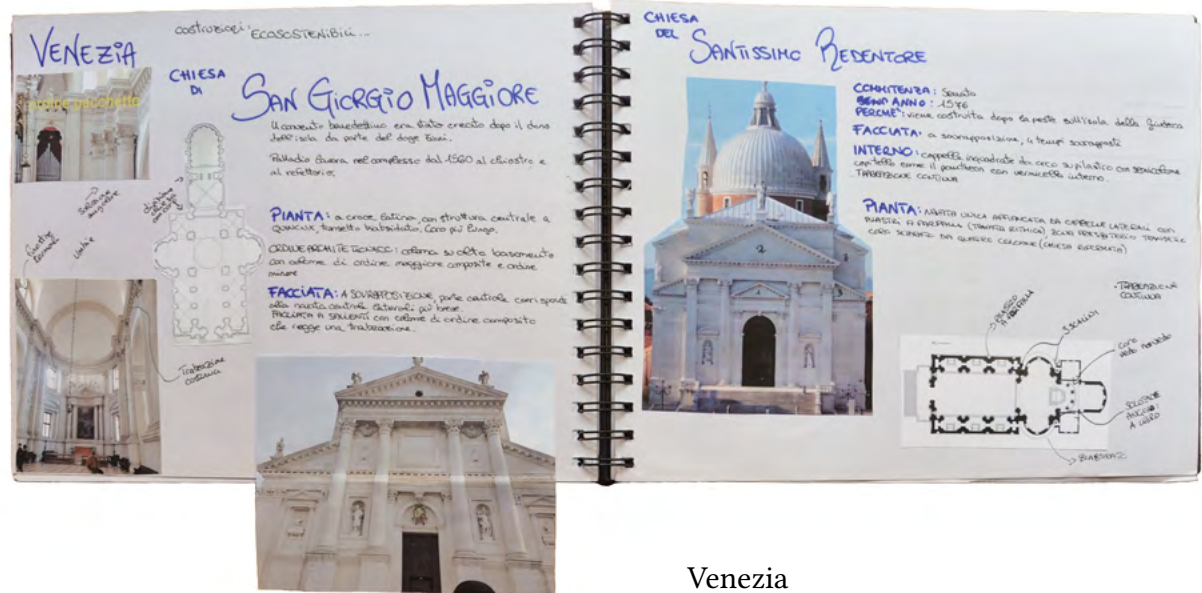 VENEZIA
costruzioni: ECOSOSTENIBILI...
CHIESA
DI
SAN GIORGIO MAGGIORE
Il convento benedettino era stato creato dopo il dono
dell'isola da parte del doge
Palladio lavora nel complesso dal 1560 al chiostro e
al refettorio;
PIANTA: a croce latina, con struttura centrale a
QUINCUX, transetto triabsidato, Coro più lungo.
ORDINE ARCHITETTONICO: colonna su alto basamento
con colonne di ordine maggiore composite e ordine
minore
FACCIATA: A SOVRAPPOSIZIONE, parte centrale corrisponde
alla navata centrale laterali più basse.
FACCIATA A SALIENTI con colonne di ordine composito
che regge una trabeazione.
Trabeazione
continua
CHIESA
DEL
SANTISSIMO REDENTORE
COMMITENZA: Senato
ANNO: 1576
PERCHE': viene costruita dopo la peste sull'isola della Giudecca
FACCIATA: a sovrapposizione, 4 tempi sovrapposti
INTERNO: cappelle inquadrate da arco su pilastro con semicolonne
capitello come il pantheon con vermicelli interno.
TRABEAZIONE CONTINUA
PIANTA: NAVATA UNICA AFFIANCATA DA CAPPELLE LATERALI CON
PILASTRI A FARFALLA (TRAVATA RITMICA) ZONA PRESBITERIO TRANSETTO
CORO SEPARATO DA QUATTRO COLONNE (CHIESA RIFORMATA)
TRABEAZIONE
CONTINUA
PILASTRO
A FARFALLA
3 SCALINI
coro
A LIBRO
2
Venezia